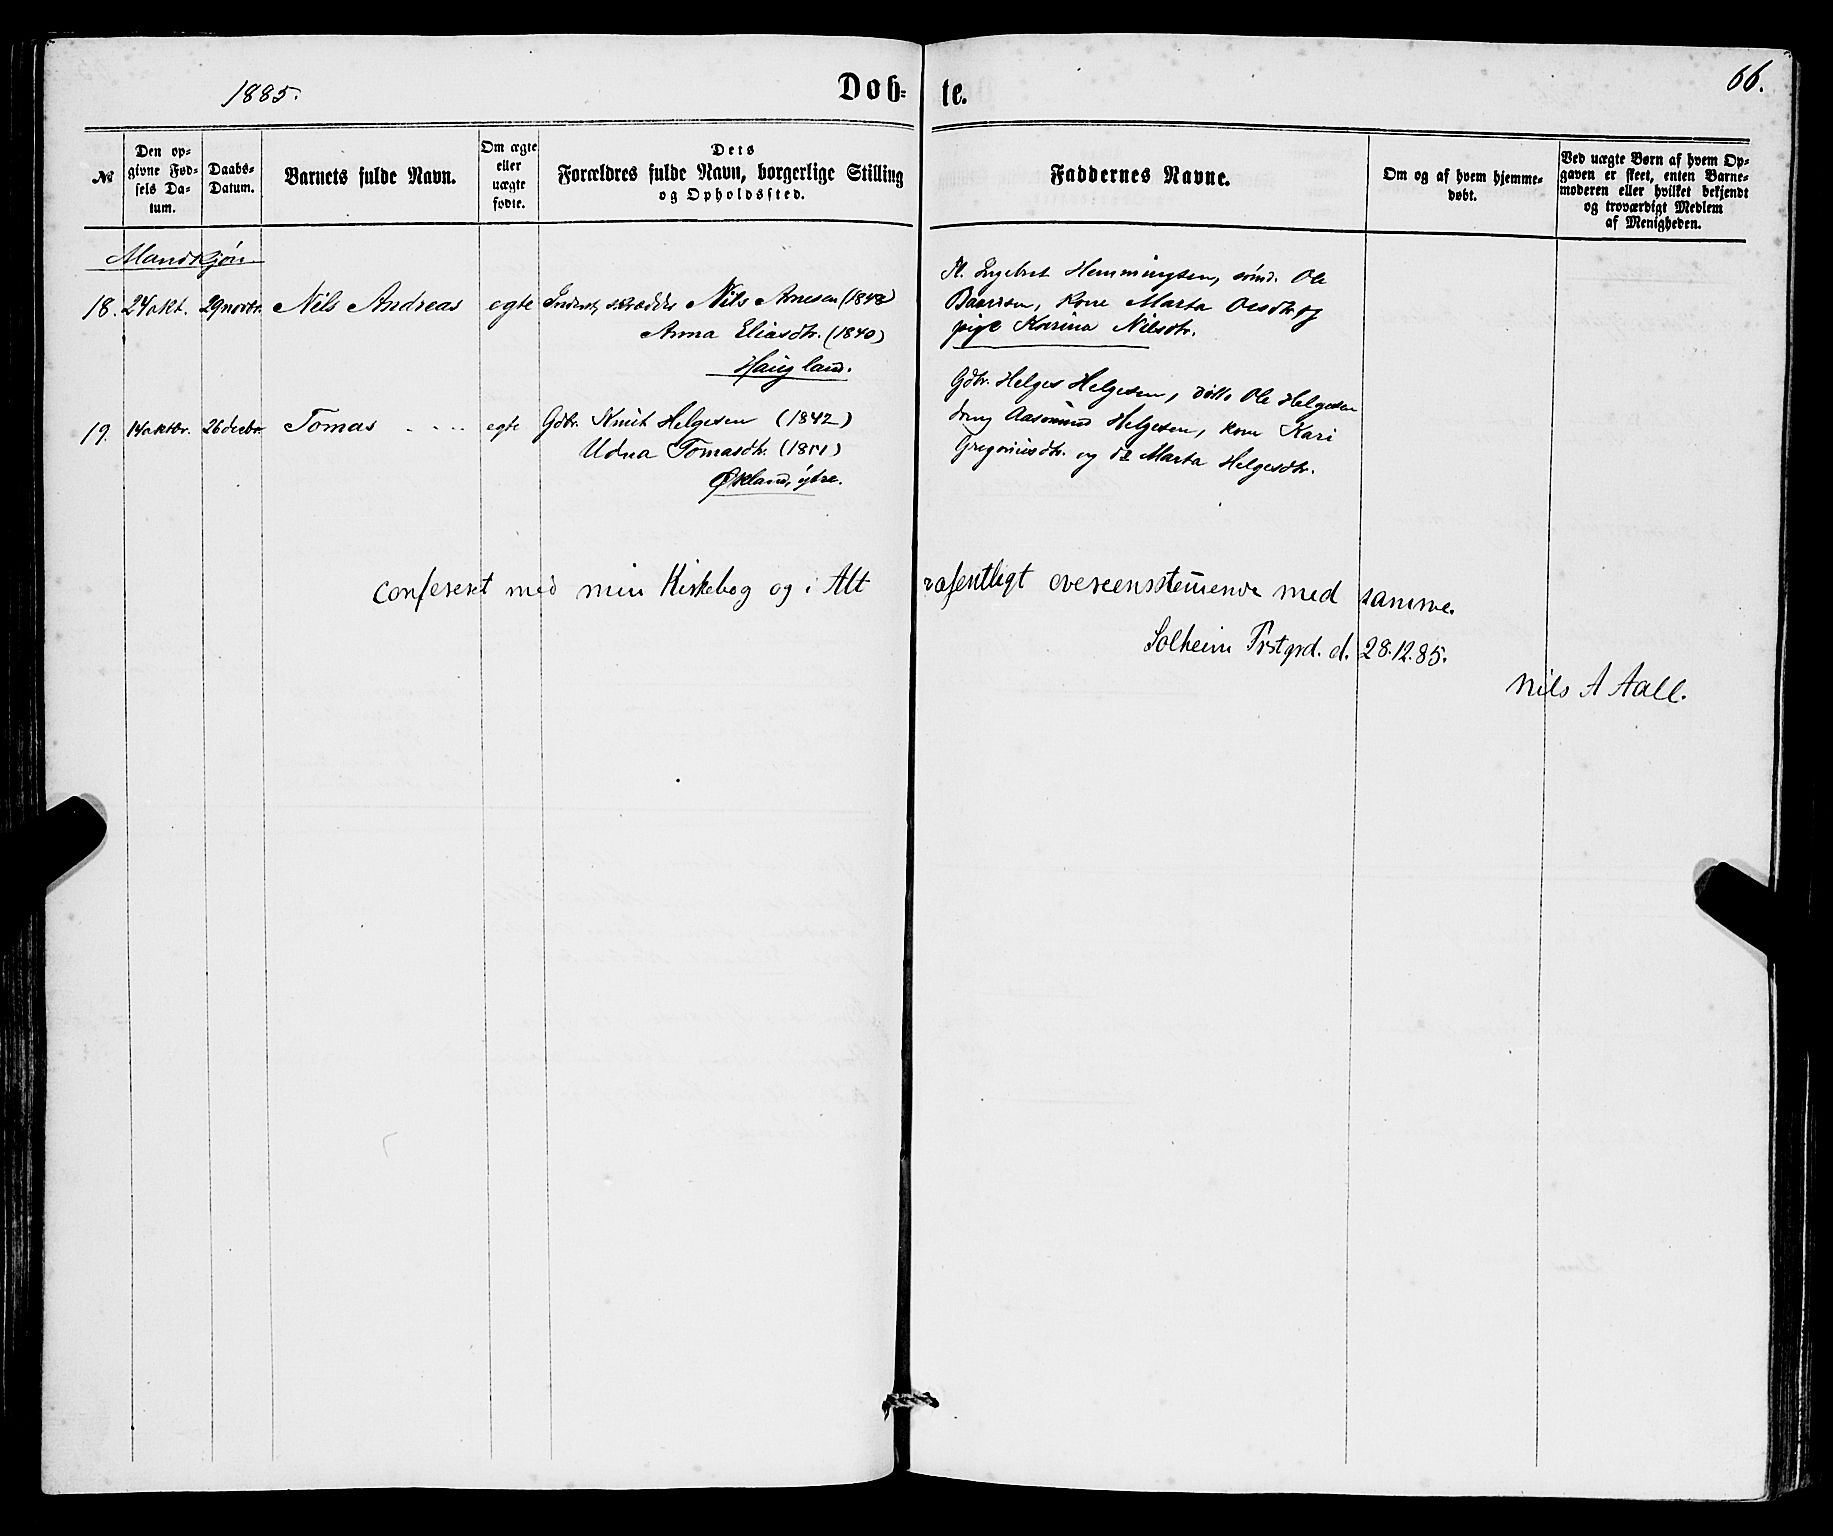 1885.
Døb-
te.
66.
№
Den op-
givne Fød-
sels Da-
tum.
Daabs-
Datum.
Barnets fulde Navn.
Om ægte
eller
uægte
fødte.
Dets
Forældres fulde Navn, borgerlige Stilling
og Opholdssted.
Faddernes Navne.
Om og af hvem hjemme-
døbt.
Ved uægte Børn af hvem Op-
gaven er skeet, enten Barne-
moderen eller hvilket bekjendt
og troværdigt Medlem
af Menigheden.
Mandkjøn
18. 24 okt. 29 novbr. Nils Andreas egte Inderst, skrædder Nils Arnesen (1848)
Anna Eliasdtr. (1840)
Haugland.
Pl. Ingebret Hemmingsen, Ole
kone Marta Olsdtr og
pige Karina Nilsdtr.
19. 14 oktbr. 26 decbr. Tomas egte Gdbr. Knut Helgesen (1842)
Udna Tomasdtr. (1851)
Økland, ytre.
Gdbr. Helges Helgesen, ditto Ole Helgesen
dreng Aasmund Helgesen, kone Kari
Gregoriusdtr. og do Marta Helgesdtr.
Confereret med min Kirkebog og i Alt væsentligt overeensstemmende med samme.
Solheim Prstgrd. d. 28.12.85.
Nils A Aall.